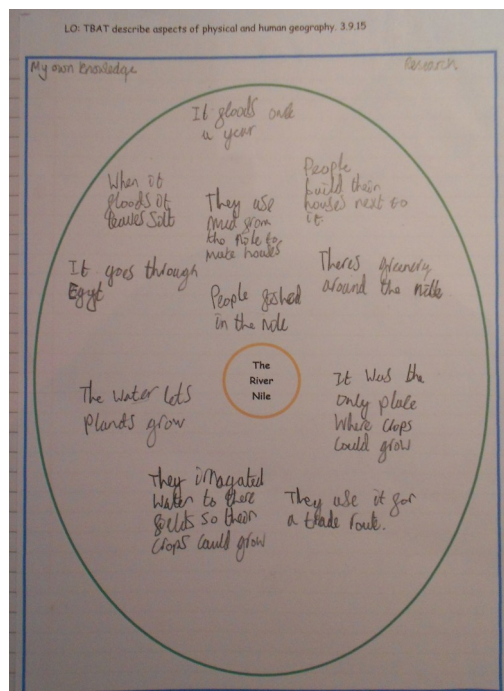 LO: TBAT describe aspects of physical and human geography. 3.9.15
My own knowledge
Research
It floods once
a year
When it
floods it
leaves silt
They use
mud from
the Nile to
make houses
People
build their
houses next to
it.
It goes through
Egypt
People fished
in the Nile
Theres greenery
around the Nile.
The
River
Nile
The water lets
plants grow
It was the
only place
where crops
could grow
They irragated
water to there
fields so their
crops could grow
They use it for
a trade route.